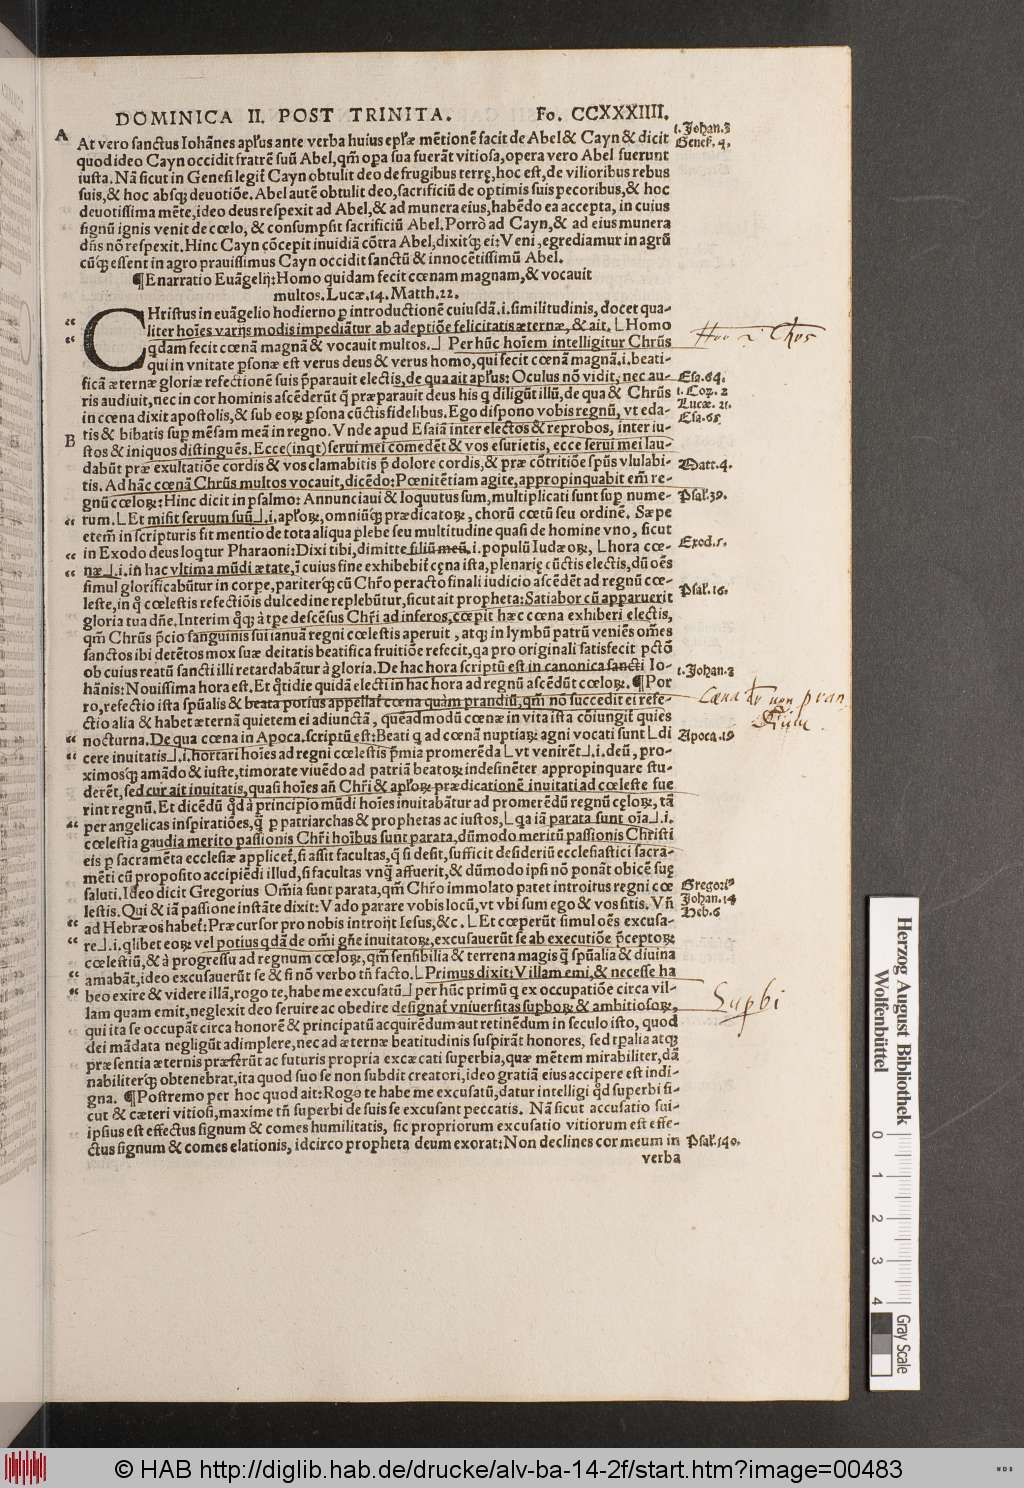 DOMINICA II. POST TRINITA. Fo. CCXXXIIII.
A
At vero sanctus Iohãnes apľus ante verba huius epľæ mẽtionẽ facit de Abel & Cayn & dicit
quod ideo Cayn occidit fratrẽ suũ Abel, qm̃ oꝑa sua fuerãt vitiosa, opera vero Abel fuerunt
iusta. Nã sicut in Genesi legiť Cayn obtulit deo de frugibus terrę, hoc est, de vilioribus rebus
suis, & hoc absqꝫ deuotiõe. Abel autẽ obtulit deo, sacrificiũ de optimis suis pecoribus, & hoc
deuotissima mẽte, ideo deus respexit ad Abel, & ad munera eius, habẽdo ea accepta, in cuius
signũ ignis venit de cœlo, & consumpsit sacrificiũ Abel. Porrò ad Cayn, & ad eius munera
dñs nõ respexit. Hinc Cayn cõcepit inuidiã cõtra Abel, dixitqꝫ ei: Veni, egrediamur in agrũ
cũqꝫ essent in agro prauissimus Cayn occidit sanctũ & innocẽtissimũ Abel.
1. Johan. 3
Genes. 4.
¶ Enarratio Euãgelij: Homo quidam fecit cœnam magnam, & vocauit
multos. Lucæ. 14. Matth. 22.
CHristus in euãgelio hodierno ꝑ introductionẽ cuiusdã .i. similitudinis, docet qua-
liter hoĩes varijs modis impediãtur ab adeptiõe felicitatis æternæ, & ait. ⌊Homo
qdam fecit cœnã magnã & vocauit multos.⌋ Per hũc hoĩem intelligitur Chr̃us
qui in vnitate ꝑsonæ est verus deus & verus homo, qui fecit cœnã magnã .i. beati-
ficã æternæ gloriæ refectionẽ suis p̃parauit electis, de qua ait apľus: Oculus nõ vidit, nec au-
ris audiuit, nec in cor hominis ascẽderũt q̃ præparauit deus his q diligũt illũ, de qua & Chr̃us
in cœna dixit apostolis, & sub eoꝝ ꝑsona cũctis fidelibus. Ego dispono vobis regnũ, vt eda-
B
tis & bibatis sup mẽsam meã in regno. Vnde apud Esaiã inter electos & reprobos, inter iu-
stos & iniquos distinguẽs. Ecce (inqt) serui mei comedẽt & vos esurietis, ecce serui mei lau-
dabũt præ exultatiõe cordis & vos clamabitis p̃ dolore cordis, & præ cõtritiõe spũs vlulabi-
tis. Ad hãc cœnã Chr̃us multos vocauit, dicẽdo: Pœnitẽtiam agite, appropinquabit em̃ re-
gnũ cœloꝝ: Hinc dicit in psalmo: Annunciaui & loquutus sum, multiplicati sunt suꝑ nume-
rum. ⌊Et misit seruum suũ⌋ .i. apľoꝝ, omniũqꝫ prædicatoꝝ, chorũ cœtũ seu ordinẽ. Sæpe
etem̃ in scripturis fit mentio de tota aliqua plebe seu multitudine quasi de homine vno, sicut
in Exodo deus loqtur Pharaoni: Dixi tibi, dimitte filiũ meũ .i. populũ Iudæoꝝ, ⌊hora cœ-
næ⌋ .i. in hac vltima mũdi ætate, ĩ cuius fine exhibebiť cęna ista, plenarię cũctis electis, dũ oẽs
simul glorificabũtur in corpe, pariterqꝫ cũ Chr̃o peracto finali iudicio ascẽdẽt ad regnũ cœ-
leste, in q̊ cœlestis refectiõis dulcedine replebũtur, sicut ait propheta: Satiabor cũ apparuerit
gloria tua dñe. Interim q̊qꝫ à tp̃e descẽsus Chr̃i ad inferos, cœpit hæc cœna exhiberi electis,
qm̃ Chr̃us p̃cio sanguinis sui ianuã regni cœlestis aperuit, atqꝫ in lymbũ patrũ veniẽs om̃es
sanctos ibi detẽtos mox suæ deitatis beatifica fruitiõe refecit, qa pro originali satisfecit pctõ
ob cuius reatũ sancti illi retardabãtur à gloria. De hac hora scriptũ est in canonica sancti Io-
hãnis: Nouissima hora est. Et q̊tidie quidã electi in hac hora ad regnũ ascẽdũt cœloꝝ. ¶ Por
ro, refectio ista spũalis & beata potius appellať cœna quàm prandiũ, qm̃ nõ succedit ei refe-
ctio alia & habet æternã quietem ei adiunctã, quẽadmodũ cœnæ in vita ista cõiungiť quies
nocturna. De qua cœna in Apoca. scriptũ est: Beati q ad cœnã nuptiaꝝ agni vocati sunt ⌊di
cere inuitatis⌋ .i. hortari hoĩes ad regni cœlestis p̃mia promerẽda ⌊vt venirẽt⌋ .i. deũ, pro-
ximosqꝫ amãdo & iuste, timorate viuẽdo ad patriã beatoꝝ indesinẽter appropinquare stu-
derẽt, sed cur ait inuitatis, quasi hoĩes añ Chr̃i & apľoꝝ prædicationẽ inuitati ad cœleste fue
rint regnũ. Et dicẽdũ q̊d à principio mũdi hoĩes inuitabãtur ad promerẽdũ regnũ cęloꝝ, tã
per angelicas inspiratiões, q̃ ꝑ patriarchas & prophetas ac iustos, ⌊qa iã parata sunt oĩa⌋ .i.
cœlestia gaudia merito passionis Chr̃i hoĩbus sunt parata, dũmodo meritũ passionis Christi
eis ꝑ sacramẽta ecclesiæ appliceť, si assit facultas, q̃ si desit, sufficit desideriũ ecclesiastici sacra-
mẽti cũ proposito accipiẽdi illud, si facultas vnq̃ affuerit, & dũmodo ipsi nõ ponãt obicẽ suę
saluti. Ideo dicit Gregorius Om̃ia sunt parata, qm̃ Chr̃o immolato patet introitus regni cœ
lestis. Qui & iã passione instãte dixit: Vado parare vobis locũ, vt vbi sum ego & vos sitis. Vñ
ad Hebræos habeť: Præcursor pro nobis introijt Iesus, &c. ⌊Et cœperũt simul oẽs excusa-
re⌋ .i. qlibet eoꝝ vel potius qdã de om̃i gñe inuitatoꝝ, excusauerũt se ab executiõe p̃ceptoꝝ
cœlestiũ, & à progressu ad regnum cœloꝝ, qm̃ sensibilia & terrena magis q̃ spũalia & diuina
amabãt, ideo excusauerũt se & si nõ verbo tñ facto. ⌊Primus dixit: Villam emi, & necesse ha
beo exire & videre illã, rogo te, habe me excusatũ⌋ per hũc primũ q ex occupatiõe circa vil-
lam quam emit, neglexit deo seruire ac obedire designať vniuersitas supboꝝ & ambitiosoꝝ,
qui ita se occupãt circa honorẽ & principatũ acquirẽdum aut retinẽdum in seculo isto, quod
dei mãdata negligũt adimplere, nec ad æternæ beatitudinis suspirãt honores, sed tꝑalia atqꝫ
præsentia æternis præferũt ac futuris propria excæcati superbia, quæ mẽtem mirabiliter, dã
nabiliterqꝫ obtenebrat, ita quod suo se non subdit creatori, ideo gratiã eius accipere est indi-
gna. ¶ Postremo per hoc quod ait: Rogo te habe me excusatũ, datur intelligi q̊d superbi si-
cut & cæteri vitiosi, maxime tñ superbi de suis se excusant peccatis. Nã sicut accusatio sui-
ipsius est effectus signum & comes humilitatis, sic propriorum excusatio vitiorum est effe-
ctus signum & comes elationis, idcirco propheta deum exorat: Non declines cor meum in
verba
Esa. 64.
1. Coꝛ. 2
Lucæ. 21.
Esa. 65
Matt. 4.
Psal. 39.
Exod. 5.
Psal. 16.
1. Johan. 2
Cœna
non
Apoca. 19
Grego.
Johan. 14
Heb. 6
Supbi
Psal. 140.
Herzog August Bibliothek
Wolfenbüttel
0 1 2 3 4
Gray Scale
© HAB http://diglib.hab.de/drucke/alv-ba-14-2f/start.htm?image=00483